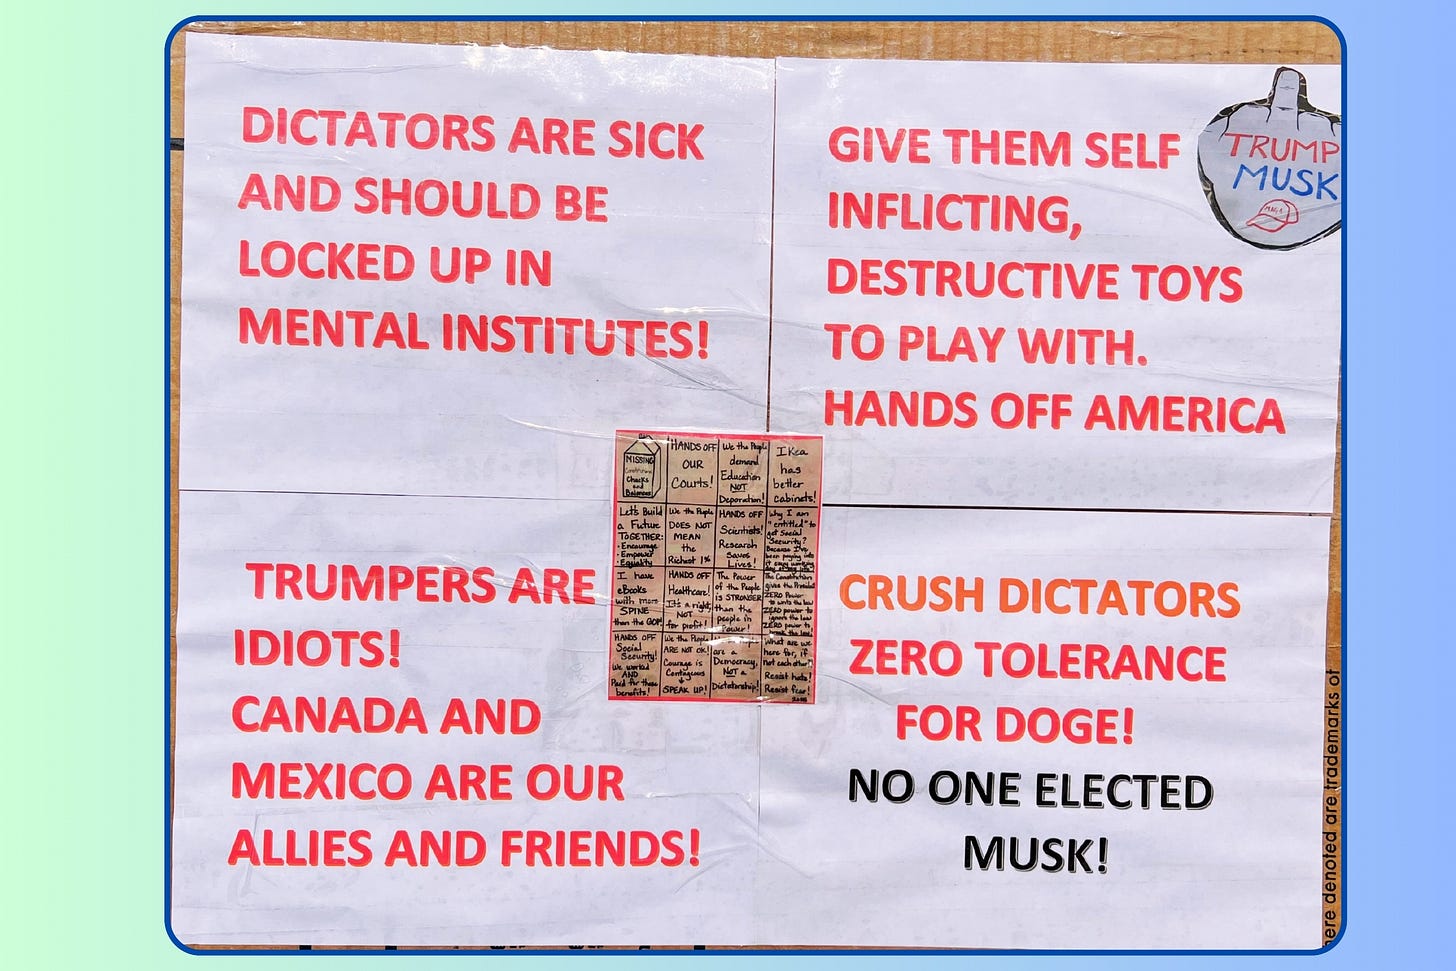 DICTATORS ARE SICK
AND SHOULD BE
LOCKED UP IN
MENTAL INSTITUTES!
GIVE THEM SELF
INFLICTING,
DESTRUCTIVE TOYS
TO PLAY WITH.
HANDS OFF AMERICA
TRUMP
MUSK
MAGA
TRUMPERS ARE
IDIOTS!
CANADA AND
MEXICO ARE OUR
ALLIES AND FRIENDS!
CRUSH DICTATORS
ZERO TOLERANCE
FOR DOGE!
NO ONE ELECTED
MUSK!
MISSING
Checks
and
Balances
HANDS OFF
OUR
Courts!
We the People
demand
Education
NOT
Deporation!
IKea
has
better
cabinets!
Let's Build
a Future
TOGETHER:
• Encourage
• Empower
• Equality
We the People
DOES NOT
MEAN
the
Richest 1%
HANDS OFF
Scientists!
Research
Saves
Lives!
Why I am
"entitled" to
get Social
Security?
Because I've
been paying into
it every working
I have
eBooks
with more
SPINE
than the GOP!
HANDS OFF
Healthcare!
It's a right,
NOT
for profit!
The Power
of the People
is STRONGER
than the
people in
Power!
The Constitution
gives the President
ZERO Power
to write the law
ZERO power to
ignore the law
ZERO power to
break the law!
HANDS OFF
Social
Security!
We worked
AND
Paid for those
benefits!
We the People
ARE NOT OK!
Courage is
Contagious
SPEAK UP!
We the People
are a
Democracy,
NOT a
Dictatorship!
What are we
here for, if
not each other?
Resist hate!
Resist fear!
here denoted are trademarks of